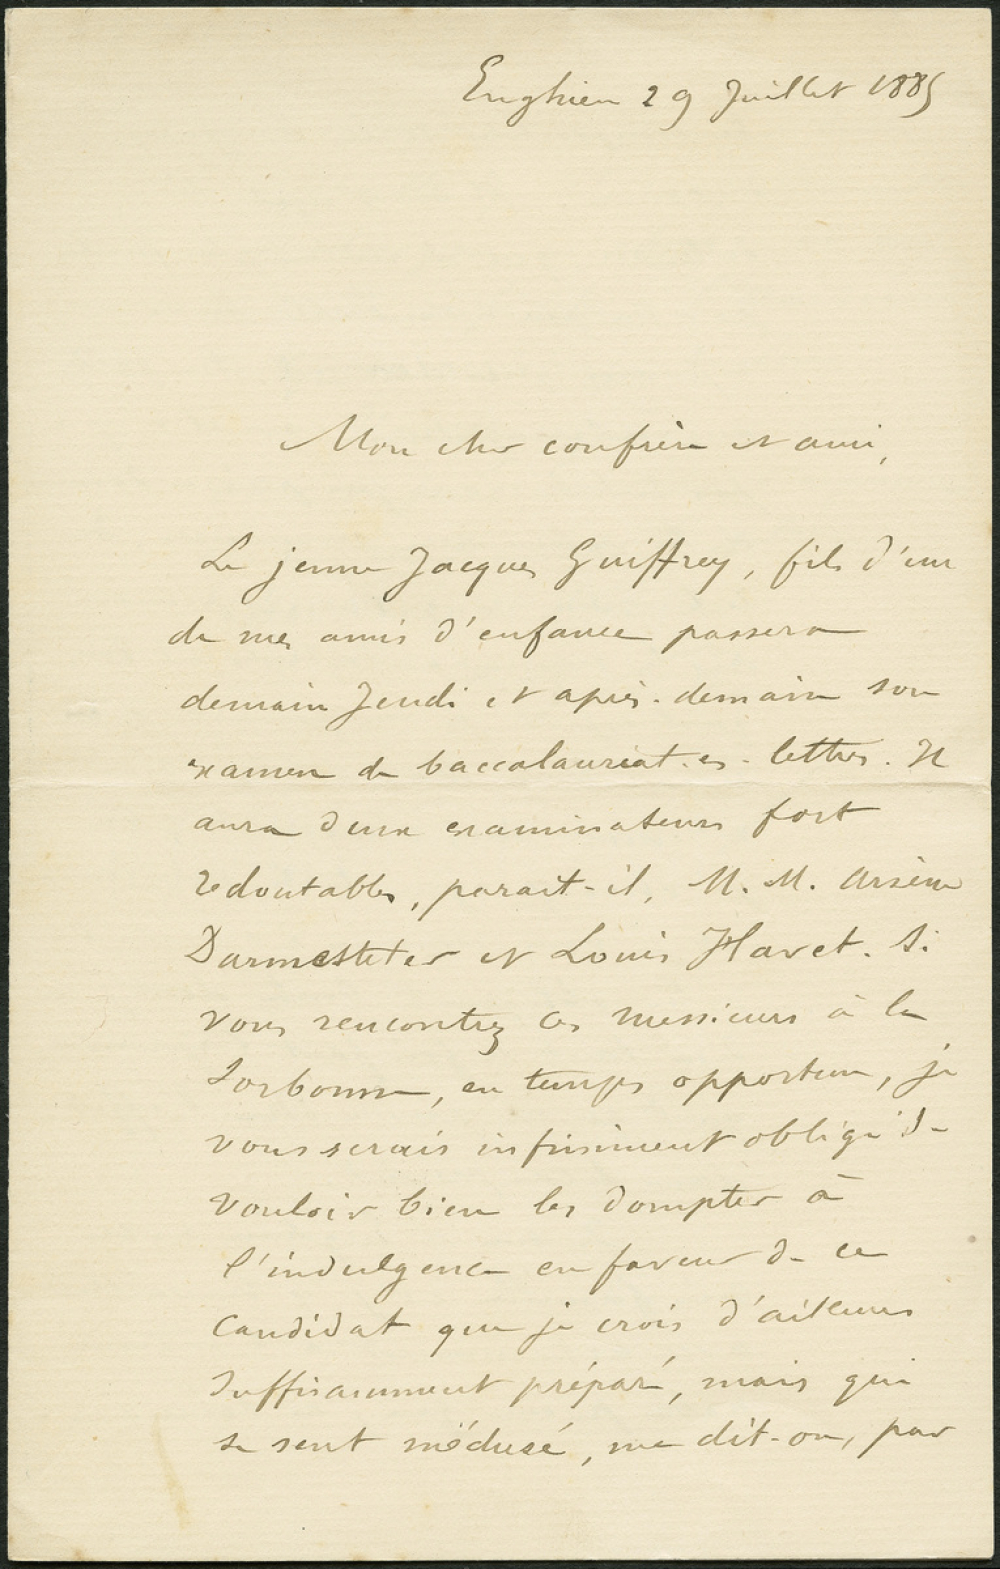 Enghien 29 Juillet 1885
Mon cher confrère et ami,
Le jeune Jacques Guiffrey, fils d'un
de mes amis d'enfance passera
demain Jeudi et après-demain son
examen de baccalauréat-es-lettres. Il
aura deux examinateurs fort
redoutables, parait-il, M. M. Arsène
Darmesteter et Louis Havet. Si
vous rencontrez ces messieurs à la
Sorbonne, en temps opportun, je
vous serais infiniment obligé de
vouloir bien les dompter à
l'indulgence en faveur de ce
candidat que je crois d'ailleurs
suffisamment préparé, mais qui
se sent médusé, me dit-on, par